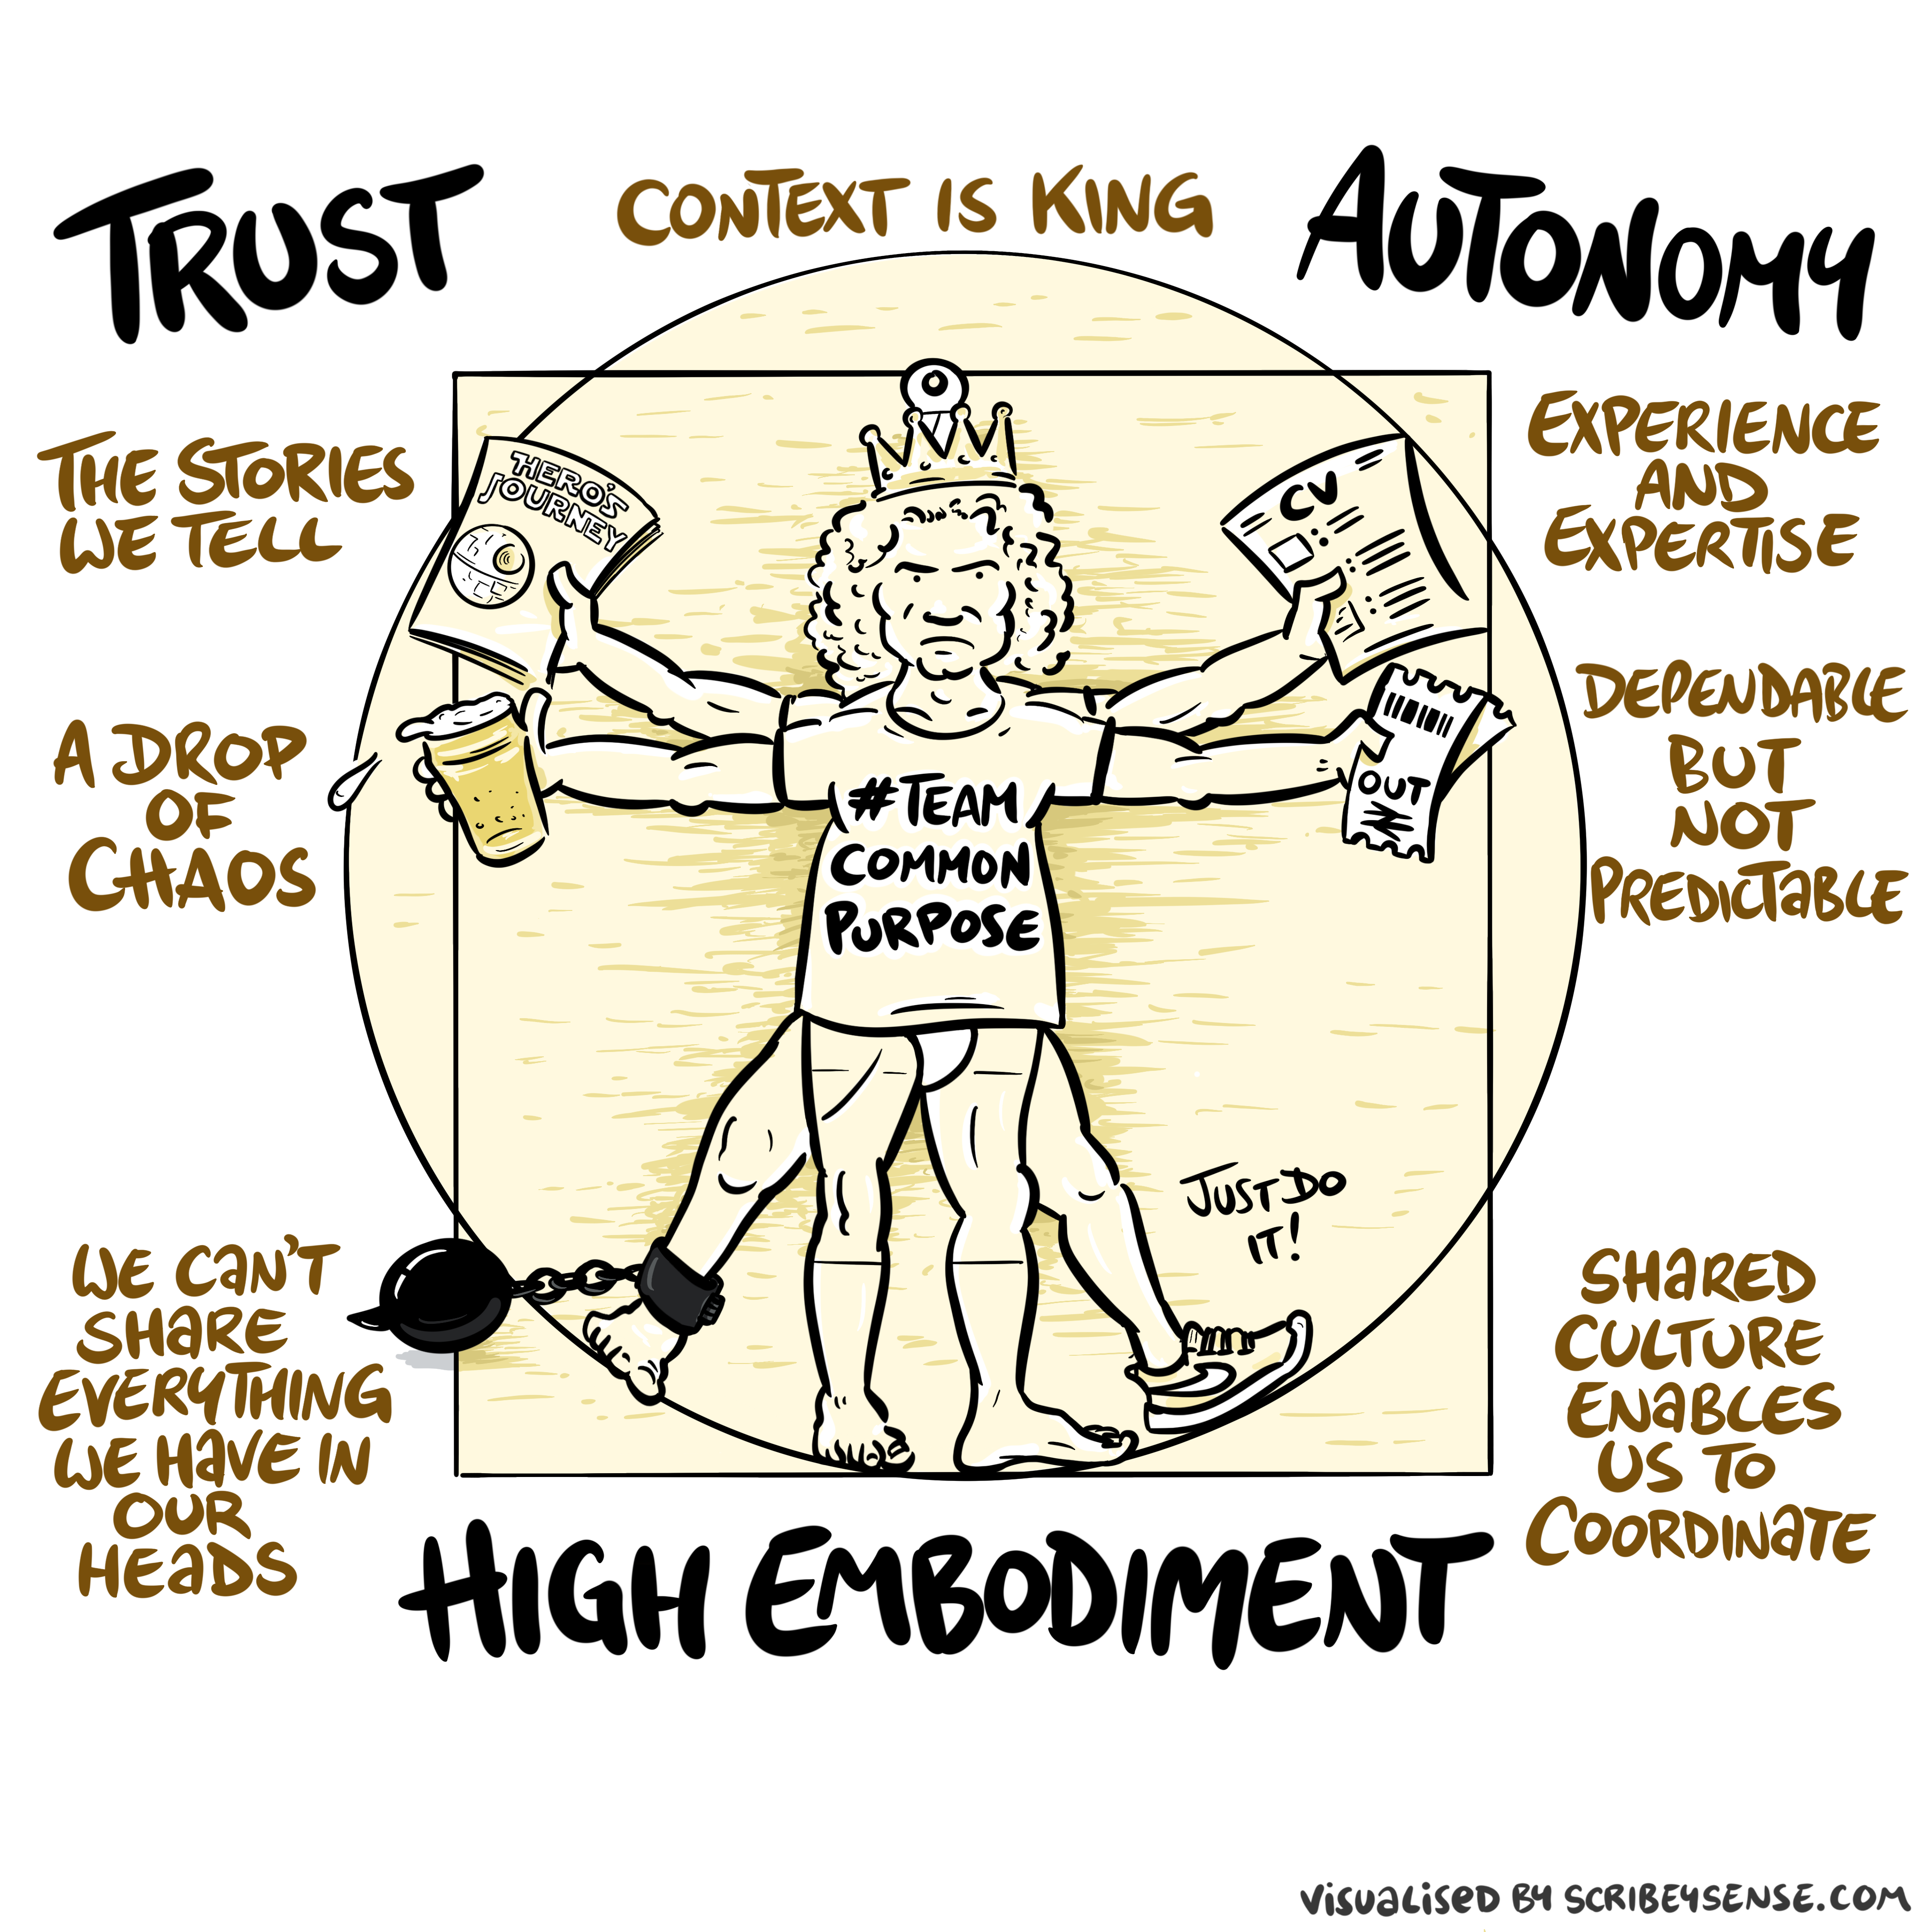 TRUST
CONTEXT IS KING
AUTONOMY
THE STORIES
WE TELL
HERO'S
JOURNEY
CV
EXPERIENCE
AND
EXPERTISE
A DROP
OF
CHAOS
OUT
DEPENDABLE
BUT
NOT
PREDICTABLE
#TEAM
COMMON
PURPOSE
JUST DO
IT!
WE CAN'T
SHARE
EVERYTHING
WE HAVE IN
OUR
HEADS
SHARED
CULTURE
ENABLES
US TO
COORDINATE
HIGH EMBODIMENT
VISUALISED BY SCRIBEYSENSE.COM